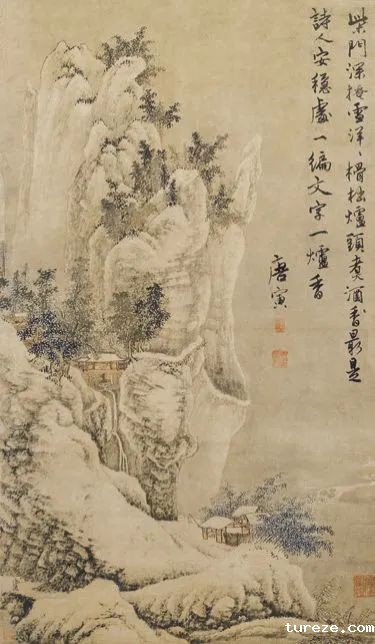 柴門深掩雪洋〻榾柮爐頭煮酒香最是
詩人安穩處一編文字一爐香
唐寅
tureze.com